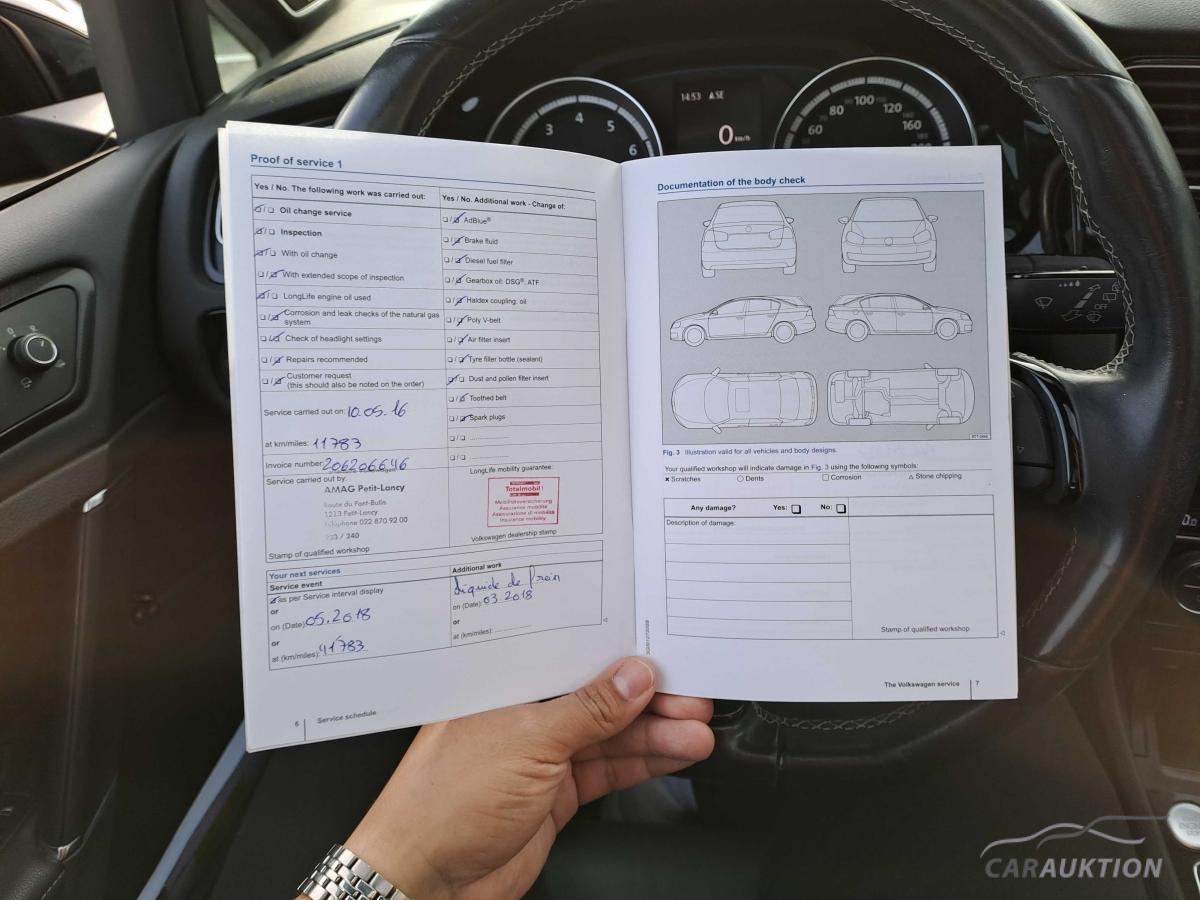 14:53 SE
3 4 5 6
0 km/h
60 80 100 120 160
Proof of service 1
Yes / No. The following work was carried out:
Oil change service
Inspection
With oil change
With extended scope of inspection
LongLife engine oil used
Corrosion and leak checks of the natural gas
system
Check of headlight settings
Repairs recommended
Customer request
(this should also be noted on the order)
Service carried out on: 10.05.16
at km/miles: 11783
Invoice number 206206646
Service carried out by:
AMAG Petit-Lancy
Route du Pont-Butin
1213 Petit-Lancy
Téléphone 022 870 92 00
/ 240
Stamp of qualified workshop
Yes / No. Additional work - Change of:
AdBlue®
Brake fluid
Diesel fuel filter
Gearbox oil: DSG®, ATF
Haldex coupling: oil
Poly V-belt
Air filter insert
Tyre filler bottle (sealant)
Dust and pollen filter insert
Toothed belt
Spark plugs
LongLife mobility guarantee:
Totalmobil!
Mobilitätsversicherung
Assurance mobilité
Assicurazione di mobilità
Insurance mobility
Volkswagen dealership stamp
Your next services
Service event
as per Service interval display
or
on (Date): 05.2018
or
at (km/miles): 41783
Additional work
Liquide de frein
on (Date): 03.2018
or
at (km/miles):
6 Service schedule
Documentation of the body check
Fig. 3 Illustration valid for all vehicles and body designs.
Your qualified workshop will indicate damage in Fig. 3 using the following symbols:
Scratches Dents Corrosion Stone chipping
Any damage? Yes: No:
Description of damage:
Stamp of qualified workshop
The Volkswagen service 7
CARAUKTION